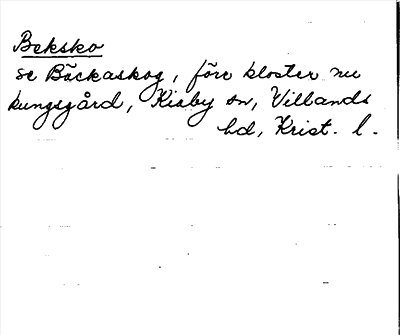 Beksko
se Bäckaskog, förr kloster nu
kungsgård, Kiaby sn, Villands
hd, Krist. l.